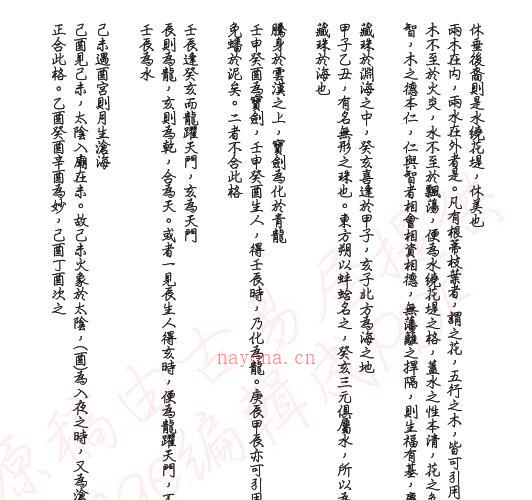 休垂後裔則是水繞花堤，休美也
兩木在內，兩水在外者是。凡有根蒂枝葉者，謂之花，五行之木，皆可引用
木不至於火炎，水不至於飄蕩，便為水繞花堤之格，蓋水之性本清，花之
智，木之德本仁，仁與智者相會相資相德，無藩籬之捍隔，則生福有基，
藏珠於淵海之中，癸亥喜逢於甲子，亥子北方為海之地
甲子乙丑，有名無形之珠也。東方朔以蚌蛤名之，癸亥三元俱屬水，所以為
藏珠於海也
騰身於雲漢之上，寶劍為化於青龍
壬申癸酉為寶劍，壬申癸酉生人，得壬辰時，乃化為龍。庚辰甲辰亦可引用
免蟠於泥矣。二者不合此格
壬辰逢癸亥而龍躍天門，亥為天門
辰則為龍，亥則為乾，合為天。或者一見辰生人得亥時，便為龍躍天門，不
壬辰為水
己未遇酉宮則月生滄海
己酉見己未，太陰入廟在未。故己未火象於太陰，(酉)為入夜之時，又為滄
正合此格。乙酉癸酉辛酉為妙，己酉丁酉次之
nayona.cn